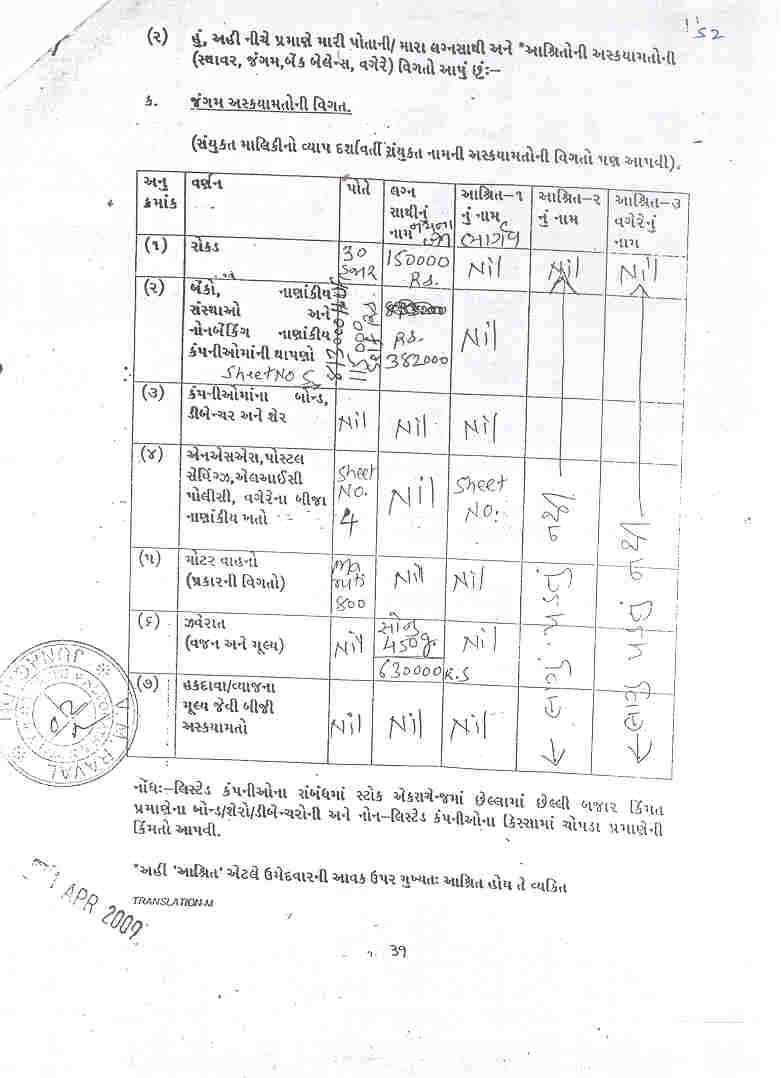 52
(૨) હું, અહીં નીચે પ્રમાણે મારી પોતાની/ મારા લગ્નસાથી અને *આશ્રિતોની અસ્કયામતોની
(સ્થાવર, જંગમ,બેંક બેલેન્સ, વગેરે) વિગતો આપું છું:-
ક. જંગમ અસ્કયામતોની વિગત.
(સંયુકત માલિકીનો વ્યાપ દર્શાવતી સંયુકત નામની અસ્કયામતોની વિગતો પણ આપવી).
અનુ ક્રમાંક
વર્ણન
પોતે
લગ્ન સાથીનું નામ
આશ્રિત-૧ નું નામ ભાર્ગવ
આશ્રિત-૨ નું નામ
આશ્રિત-૩ વગેરેનું નામ
(૧) રોકડ 30 હજાર 150000 Rs. Nil Nil Nil
(૨) બેંકો, નાણાંકીય
સંસ્થાઓ અને
નોનબેંકિંગ નાણાંકીય Rs. Nil
કંપનીઓમાંની થાપણો 382000
Sheet NO 5
(૩) કંપનીઓમાંના બોન્ડ,
ડીબેન્ચર અને શેર Nil Nil Nil
(૪) એનએસએસ,પોસ્ટલ
સેવિંગ્ઝ,એલઆઈસી Sheet Nil Sheet
પોલીસી, વગેરેના બીજા NO. NO.
નાણાંકીય ખતો 4
(૫) મોટર વાહનો Maruti Nil Nil
(પ્રકારની વિગતો) 800
(૬) ઝવેરાત સોનુ
(વજન અને મૂલ્ય) Nil 450g. Nil
630000 R.S
(૭) હકદાવા/વ્યાજના
મૂલ્ય જેવી બીજી Nil Nil Nil
અસ્કયામતો
લાગુ પડતું નથી
લાગુ પડતું નથી
નોંધ:-લિસ્ટેડ કંપનીઓના સંબંધમાં સ્ટોક એકસચેન્જમાં છેલ્લામાં છેલ્લી બજાર કિંમત
પ્રમાણેના બોન્ડ/શેરો/ડીબેન્ચરોની અને નોન-લિસ્ટેડ કંપનીઓના કિસ્સામાં ચોપડા પ્રમાણેની
કિંમતો આપવી.
*અહીં 'આશ્રિત' એટલે ઉમેદવારની આવક ઉપર મુખ્યતઃ આશ્રિત હોય તે વ્યકિત
TRANSLATION-M
APR 2009
૩૧
V.M. RAVAL